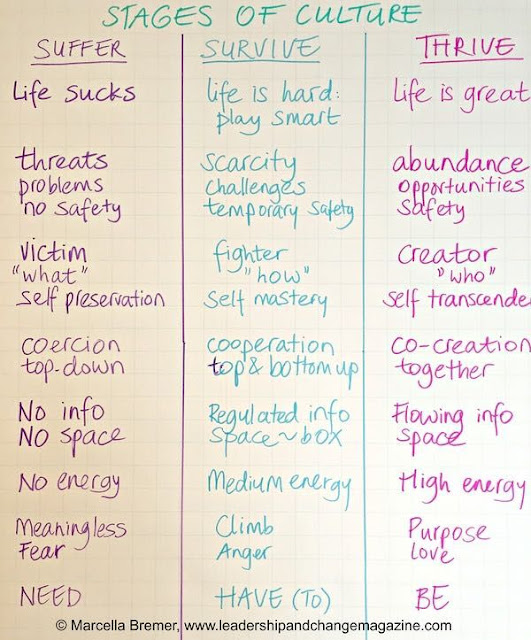 STAGES OF CULTURE
SUFFER
Life sucks
threats
problems
no safety
victim
"what"
Self preservation
coercion
top-down
No info
No space
No energy
Meaningless
Fear
NEED
SURVIVE
life is hard:
play smart
scarcity
challenges
temporary safety
fighter
"how"
Self mastery
cooperation
top & bottom up
Regulated info
Space ~ box
Medium energy
Climb
Anger
HAVE (TO)
THRIVE
life is great
abundance
opportunities
Safety
creator
"who"
Self transcende
co-creation
together
Flowing info
Space
High energy
Purpose
Love
BE
© Marcella Bremer, www.leadershipandchangemagazine.com